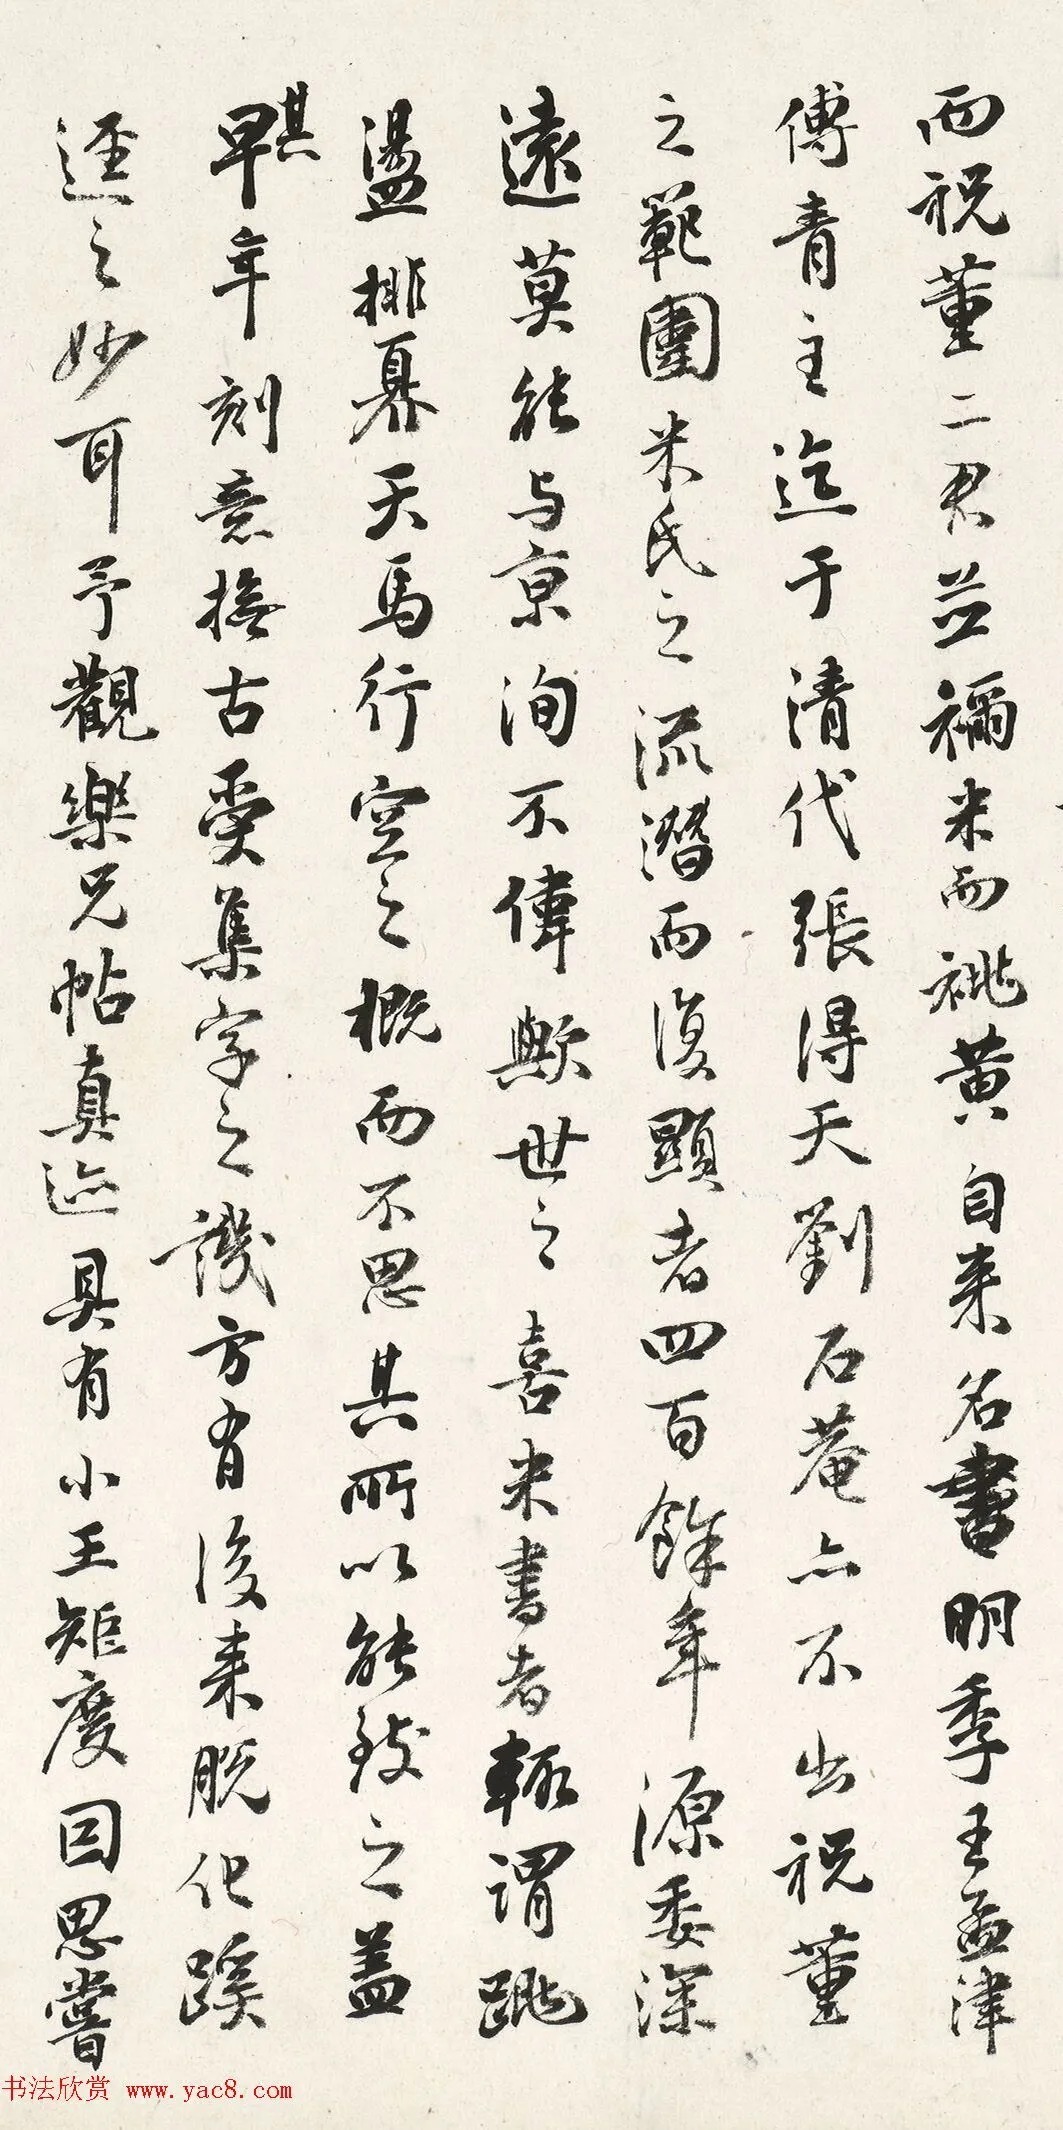 而祝董二君並禰米而祧黄自来名書明季王孟津
傅青主迄于清代張得天劉石菴亦不出祝董
之範圍米氏之流潛而復顯者四百餘年源委深
遠莫能与京洵不偉歟世之喜米書者輒謂跳
盪排奡天馬行空之概而不思其所以能致之盖
其早年刻意撫古受集字之譏方有後来脱化蹊
逕之妙耳予觀樂兄帖真迹具有小王矩度因思嘗
书法欣赏 www.yac8.com